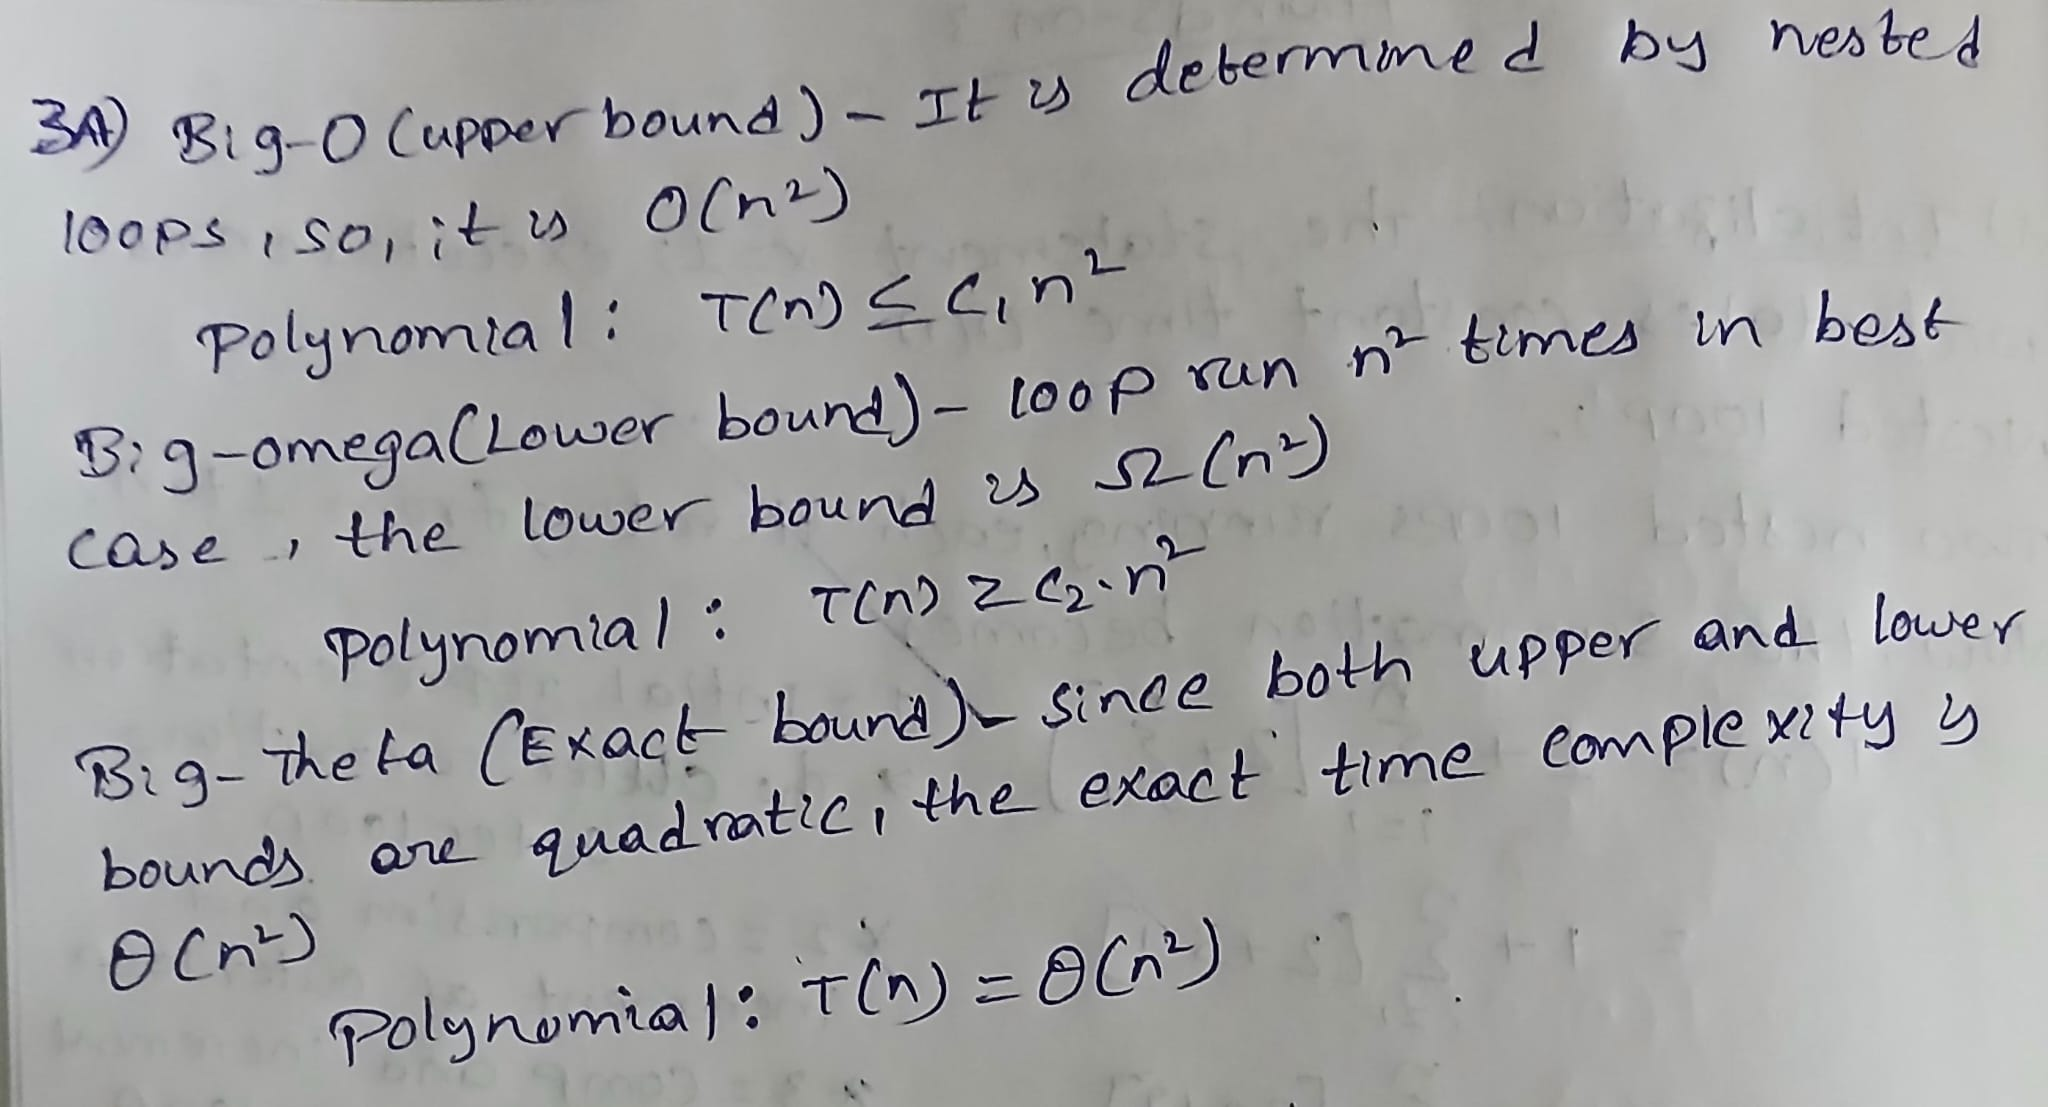 3A) Big-O (upper bound) - It is determined by nested
loops, so, it is O(n²)
Polynomial: T(n) ≤ C₁n²
Big-omega(Lower bound) - loop run n² times in best
case, the lower bound is Ω(n²)
Polynomial: T(n) ≥ C₂.n²
Big-theta (Exact bound) - since both upper and lower
bounds are quadratic, the exact time complexity is
θ(n²)
Polynomial: T(n) = θ(n²)